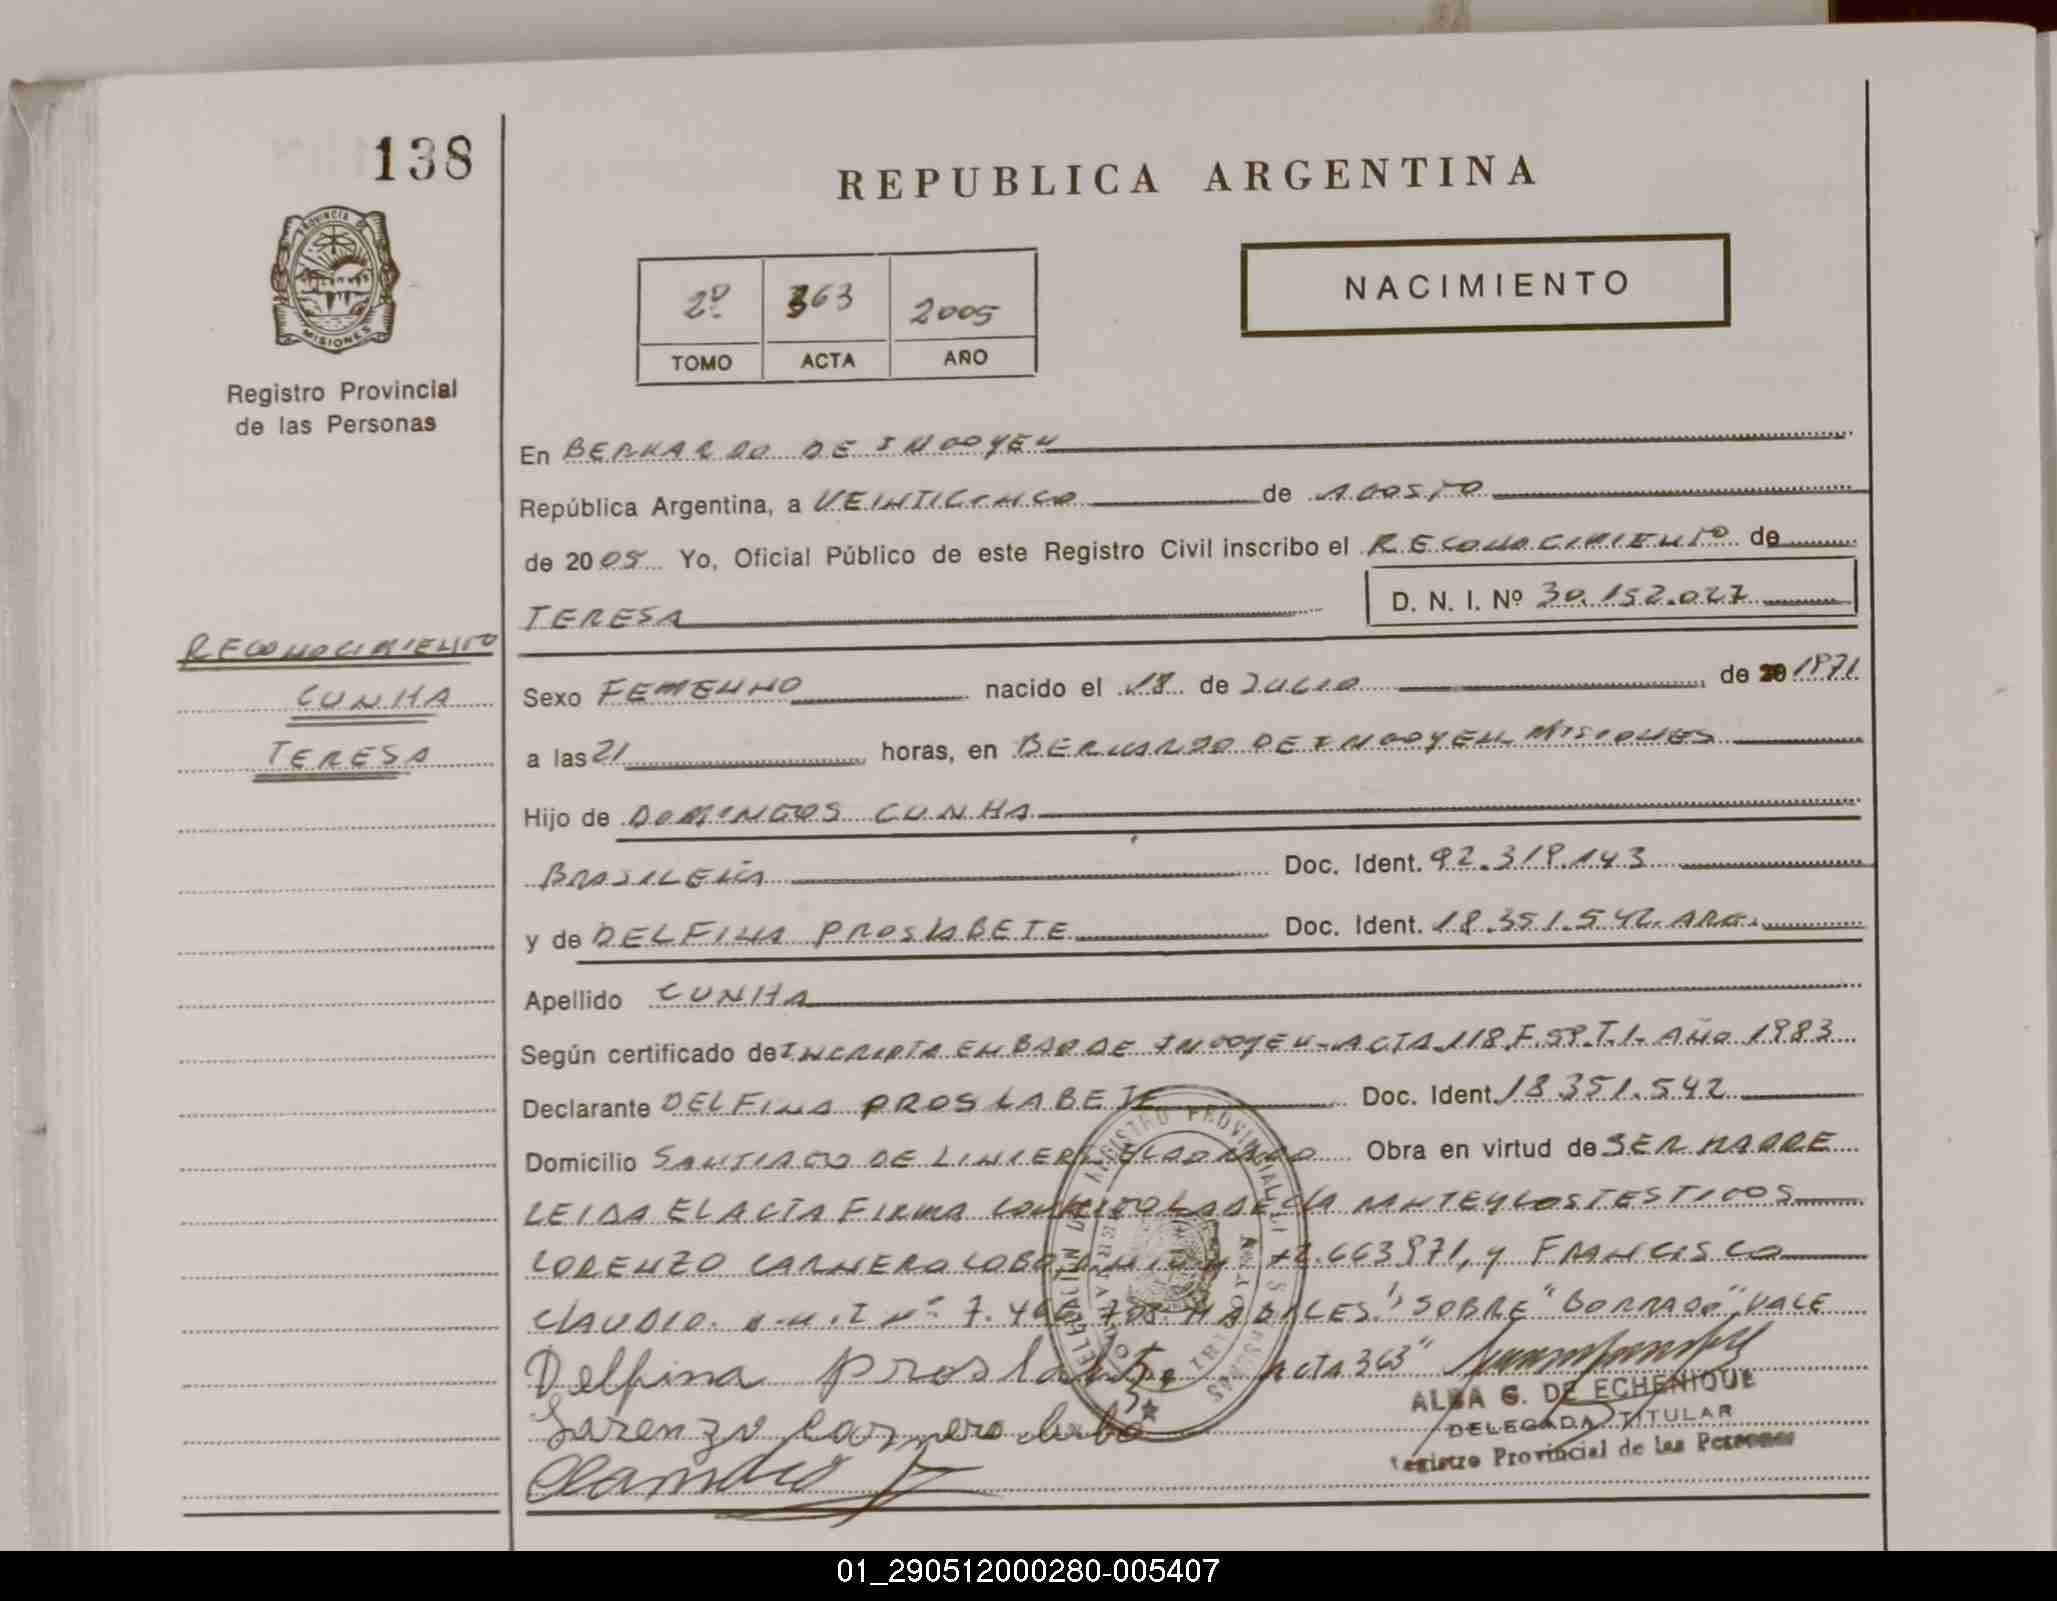 138
REPUBLICA ARGENTINA
PROVINCIA DE
MISIONES
Registro Provincial
de las Personas
2º 363 2005
TOMO ACTA AÑO
NACIMIENTO
En BERNARDO DE IRIGOYEN
República Argentina, a VEINTICINCO de AGOSTO
de 2005 Yo, Oficial Público de este Registro Civil inscribo el RECONOCIMIENTO de
TERESA D. N. I. Nº 30.152.027
RECONOCIMIENTO
CUNHA
TERESA
Sexo FEMENINO nacido el 18 de JULIO de 20 1971
a las 21 horas, en BERNARDO DE IRIGOYEN MISIONES
Hijo de DOMINGOS CUNHA
BRASILEÑA Doc. Ident. 92.319.143
y de DELFINA PROSLABETE Doc. Ident. 18.351.542. ARG.
Apellido CUNHA
Según certificado de INCRIPTA EN BDO DE IRIGOYEN-ACTA.118.F.59.T.1- AÑO 1983
Declarante DELFINA PROSLABETE Doc. Ident. 18.351.542
Domicilio SANTIAGO DE LINIERS ELDORADO Obra en virtud de SER MADRE
LEIDA EL ACTA FIRMA CONMIGO LA DECLARANTE Y LOS TESTIGOS
LORENZO CARNERO LOBO 2.663971, y FRANCISCO
CLAUDIO. D.N.I Nº 7. HABILES!) SOBRE "BORRADO", VALE
Delfina Proslabete ACTA 363"
ALBA G. DE ECHENIQUE
DELEGADA TITULAR
Registro Provincial de las Personas
Lorenzo Carnero Lobo
Claudio
REGISTRO PROVINCIAL
01_290512000280-005407